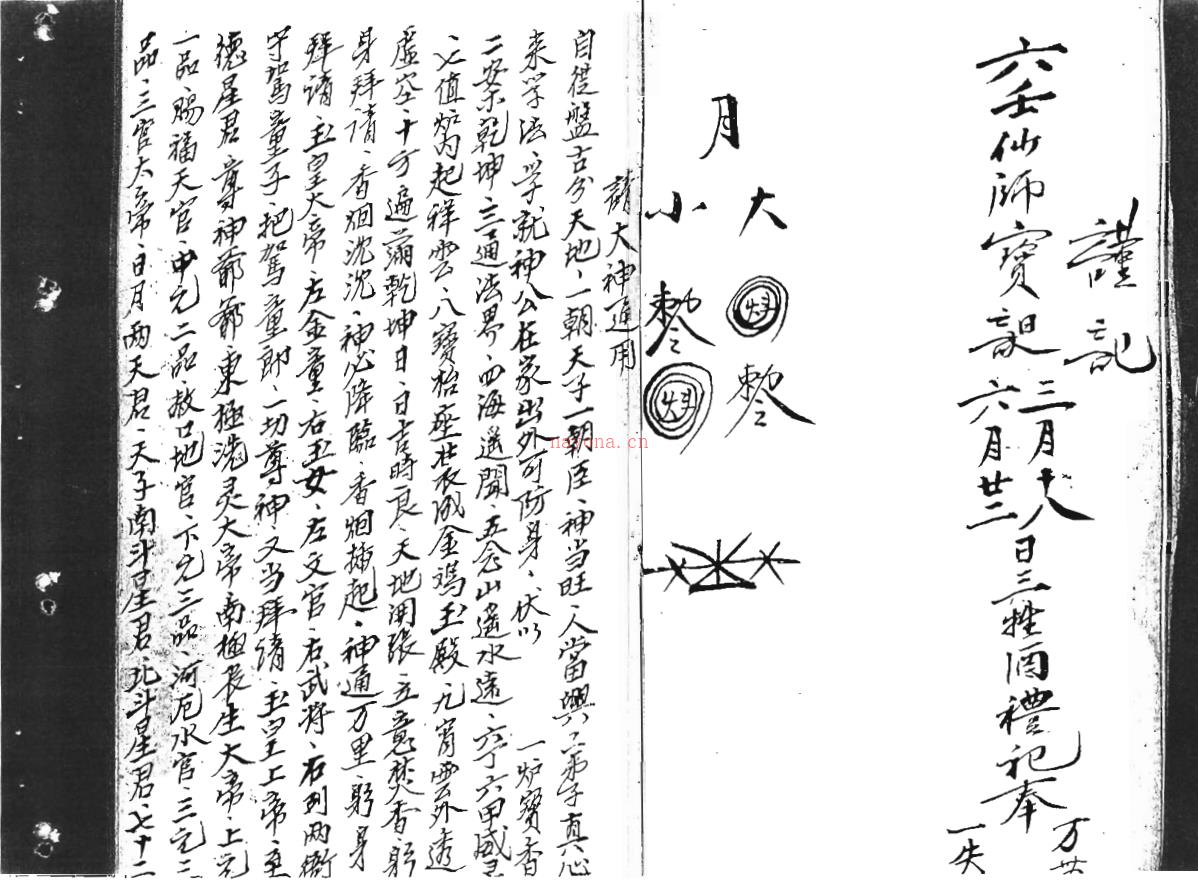 謹記
六壬仙師寶誕 三月十八
六月廿二 日三牲酒禮祀奉
万
一失
月
大 敕
小 敕
請大神通用
自從盤古分天地、一朝天子一朝臣、神当旺人當興、弟子真心
来学法、学就神公在家出外可防身、伏以 一炉寶香
二案乾坤、三通法界、四海遥聞、五念山遥水遠、六丁六甲威
七值炉内起祥雲、八寶枱座壮衣成金鸡玉殿、九霄雲外透
虚空、十方遍滿乾坤日、日吉時良、天地開张、立意焚香、躬
身拜請、香烟沈沈、神必降臨、香烟捧起、神通万里、躬身
拜請、玉皇大帝、左金童、右玉女、左文官、右武将、右列两衙
守駕童子、把駕童郎、一切尊神、又当拜請、玉皇上帝、主
德星君、尊神爺爺、東極洗灵大帝、南極長生大帝、上元
一品、賜福天官、中元二品、赦口地官、下元三品、河厄水官、三元三
品、三官大帝、日月两天君、天子南斗星君、北斗星君、七十二
nayona.cn